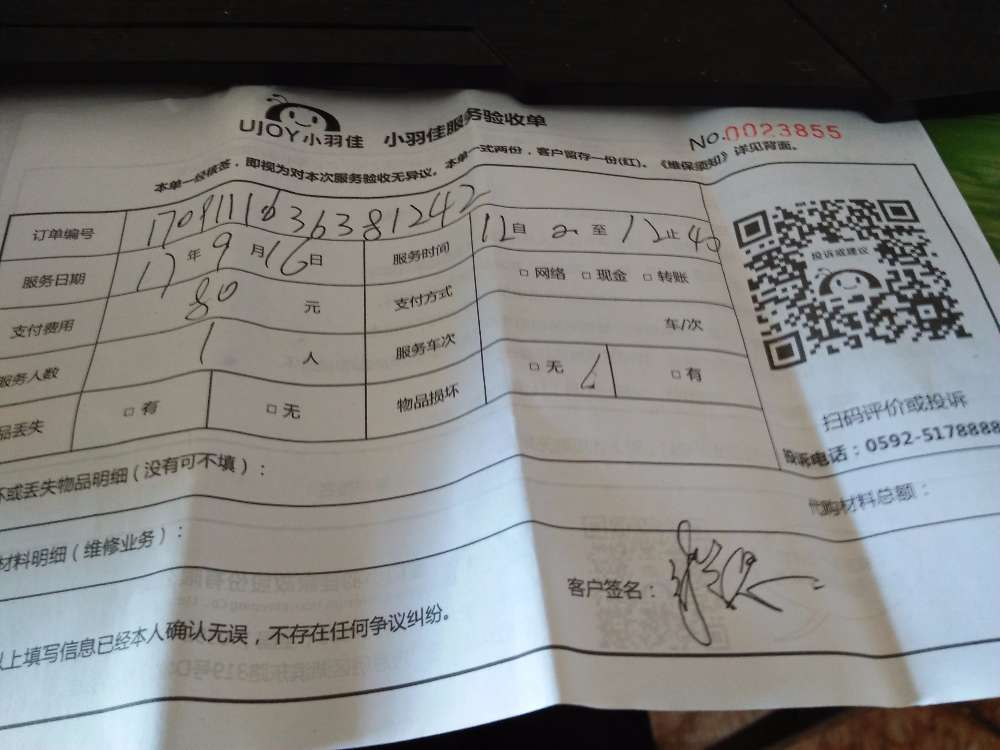 UJOY小羽佳 小羽佳服务验收单 No.0023855
本单一经核签，即视为对本次服务验收无异议。本单一式两份，客户留存一份(红)。《维保须知》详见背面。
订单编号 1709111636381242 服务时间 12自 至12止40
服务日期 17年9月16日 支付方式 □ 网络 □ 现金 □ 转账
支付费用 80 元 服务车次 车/次
服务人数 1 人 物品损坏 □ 无 □ 有
品丢失 □ 有 □ 无
投诉或建议
扫码评价或投诉
投诉电话：0592-5178888
坏或丢失物品明细（没有可不填）：
材料明细（维修业务）： 代购材料总额：
客户签名：
以上填写信息已经本人确认无误，不存在任何争议纠纷。